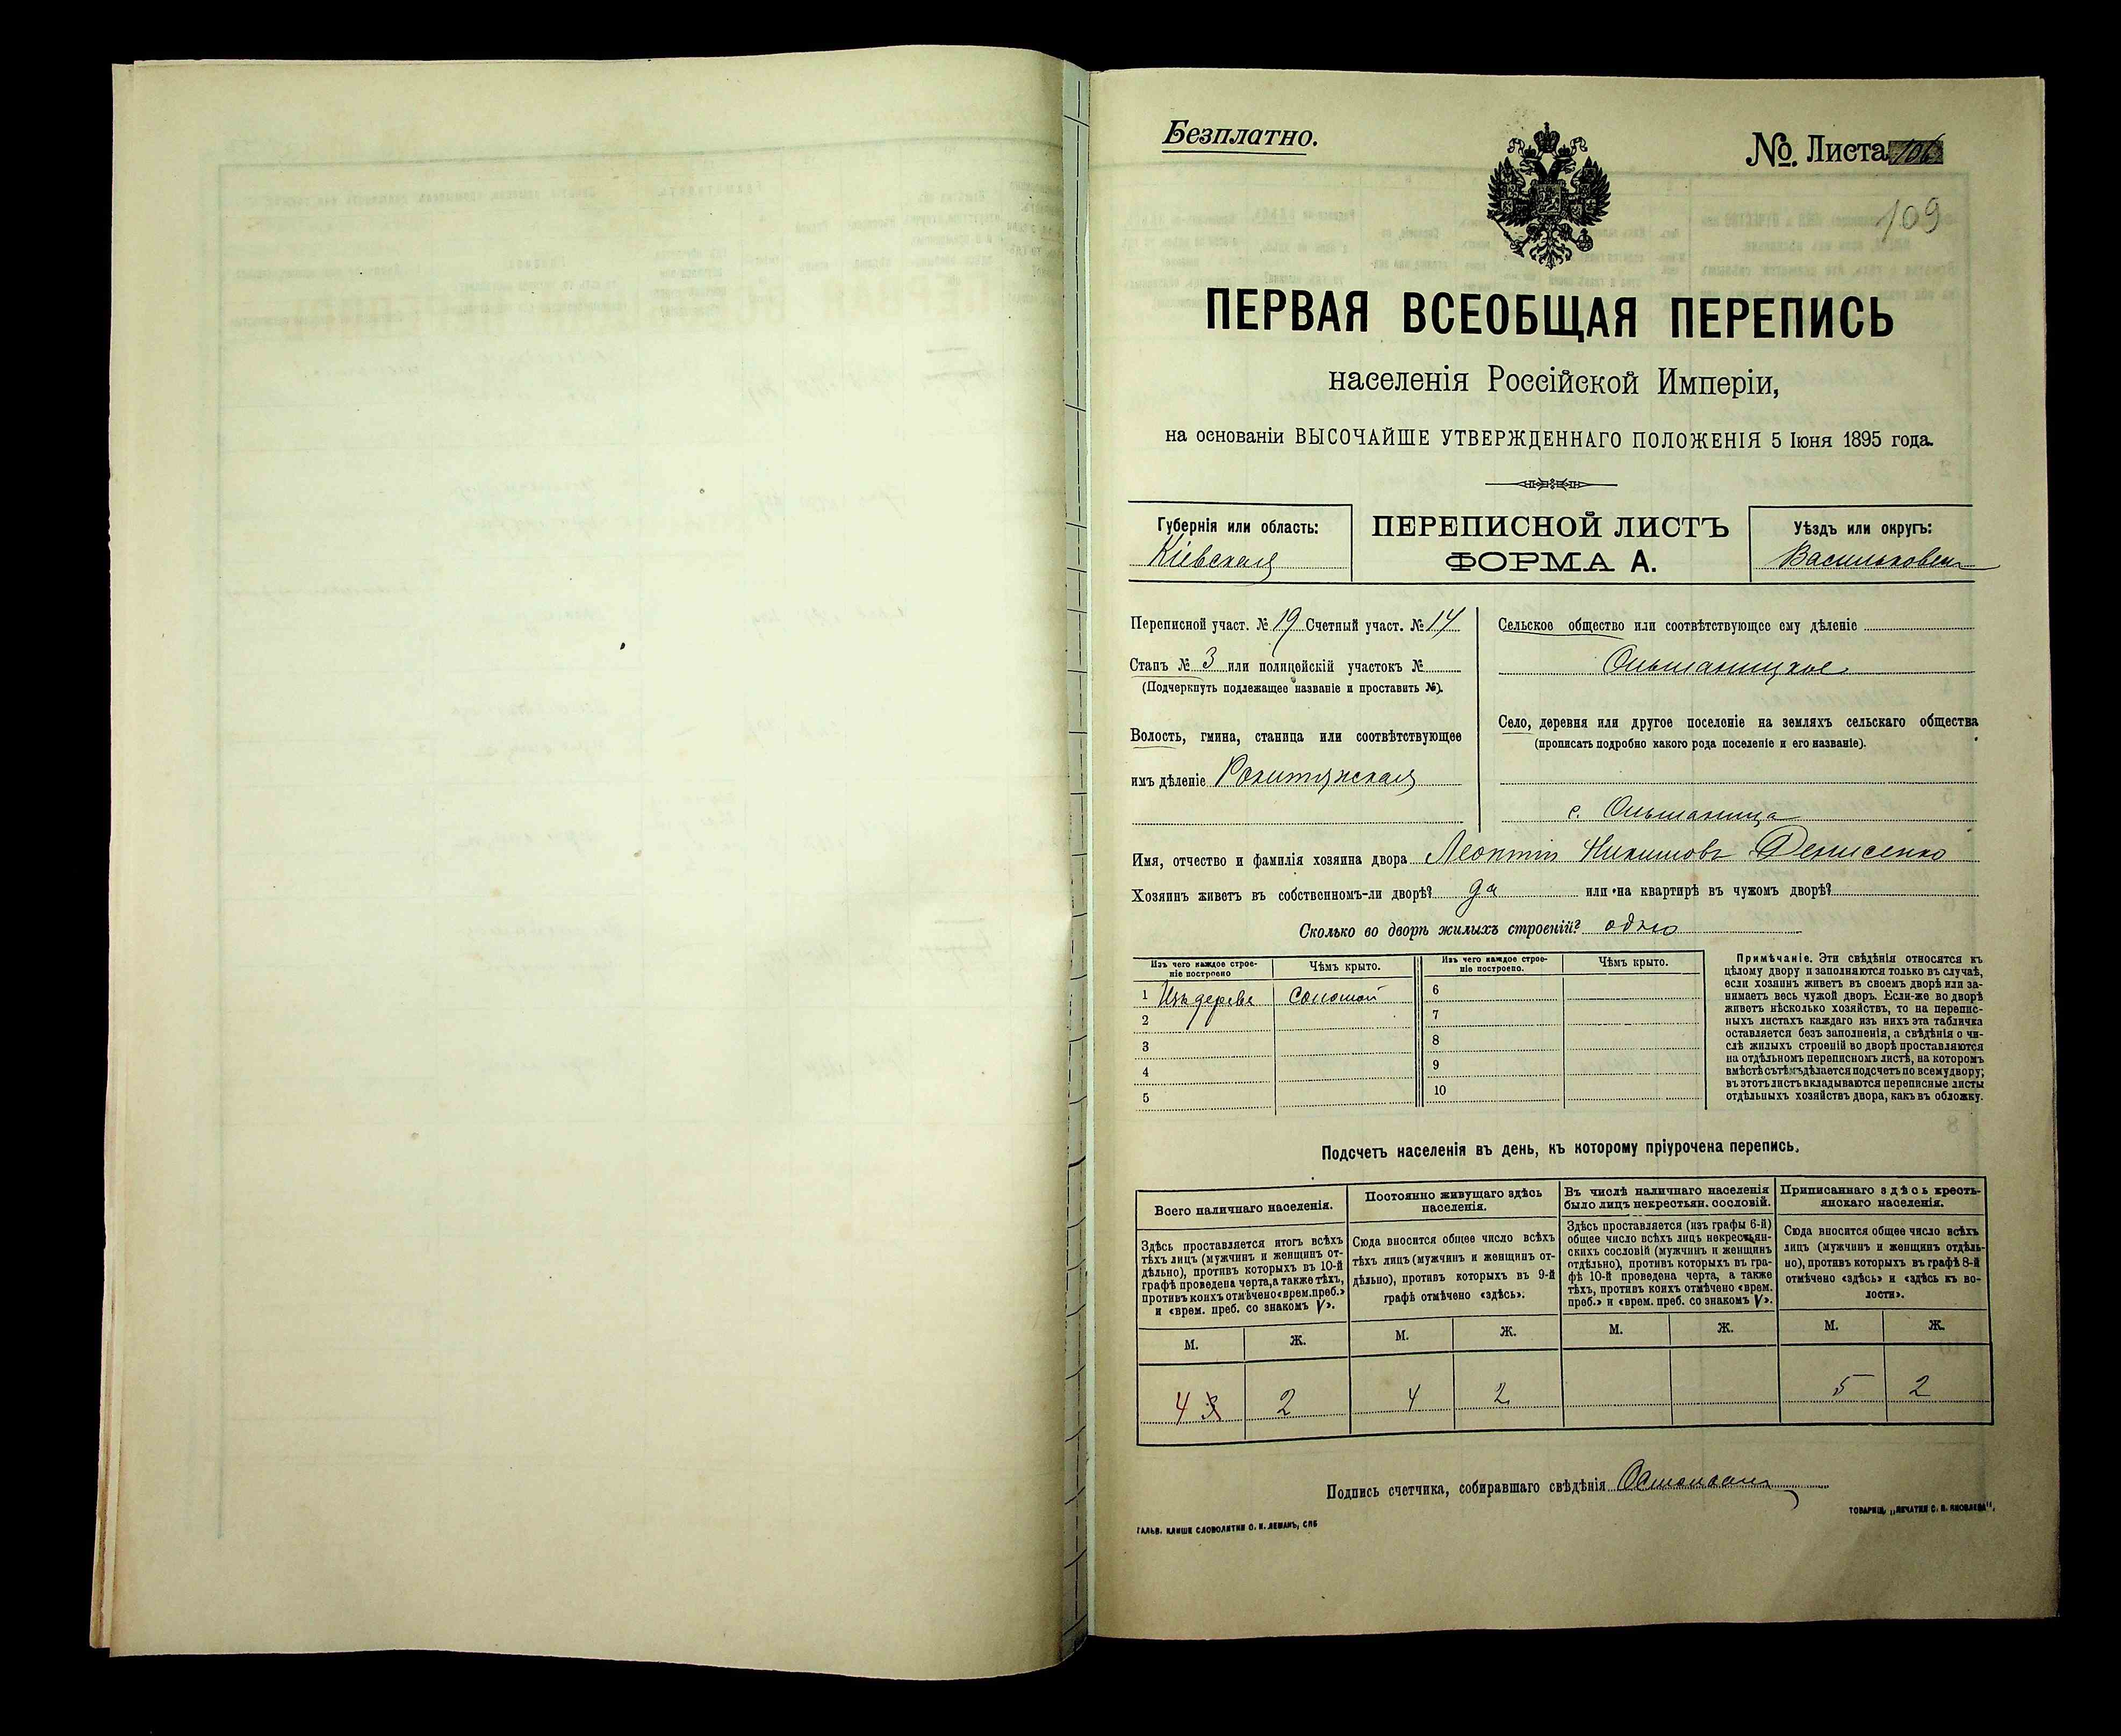 Безплатно.
№. Листа 106
109
ПЕРВАЯ ВСЕОБЩАЯ ПЕРЕПИСЬ
населенія Россійской Имперіи,
на основаніи ВЫСОЧАЙШЕ УТВЕРЖДЕННАГО ПОЛОЖЕНІЯ 5 Іюня 1895 года.
Губернія или область:
Кіевская
ПЕРЕПИСНОЙ ЛИСТЪ
ФОРМА А.
Уѣздъ или округъ:
Васильковск
Переписной участ. № 19 Счетный участ. № 14
Станъ № 3 или полицейскій участокъ №
(Подчеркнуть подлежащее названіе и проставить №).
Волость, гмина, станица или соотвѣтствующее
имъ дѣленіе Ракитянская
Сельское общество или соотвѣтствующее ему дѣленіе
Ольшаницкое
Село, деревня или другое поселеніе на земляхъ сельскаго общества
(прописать подробно какого рода поселеніе и его названіе).
с. Ольшаница
Имя, отчество и фамилія хозяина двора Леонтій Никитовъ Денисенко
Хозяинъ живетъ въ собственномъ-ли дворѣ? да или на квартирѣ въ чужомъ дворѣ?
Сколько во дворѣ жилыхъ строеній? одно
Изъ чего каждое строе-
ніе построено
Чѣмъ крыто.
Изъ чего каждое строе-
ніе построено.
Чѣмъ крыто.
1 Изъ дерева Соломой
2
3
4
5
6
7
8
9
10
Примѣчаніе. Эти свѣдѣнія относятся къ
цѣлому двору и заполняются только въ случаѣ,
если хозяинъ живетъ въ своемъ дворѣ или за-
нимаетъ весь чужой дворъ. Если-же во дворѣ
живетъ нѣсколько хозяйствъ, то на перепис-
ныхъ листахъ каждаго изъ нихъ эта табличка
оставляется безъ заполненія, а свѣдѣнія о чи-
слѣ жилыхъ строеній во дворѣ проставляются
на отдѣльномъ переписномъ листѣ, на которомъ
вмѣстѣ съ тѣмъ дѣлается подсчетъ по всему двору;
въ этотъ листъ вкладываются переписные листы
отдѣльныхъ хозяйствъ двора, какъ въ обложку.
Подсчетъ населенія въ день, къ которому пріурочена перепись.
Всего наличнаго населенія.
Здѣсь проставляется итогъ всѣхъ
тѣхъ лицъ (мужчинъ и женщинъ от-
дѣльно), противъ которыхъ въ 10-й
графѣ проведена черта, а также тѣхъ,
противъ коихъ отмѣчено «врем. преб.»
и «врем. преб. со знакомъ V».
М. Ж.
4 3 2
Постоянно живущаго здѣсь
населенія.
Сюда вносится общее число всѣхъ
тѣхъ лицъ (мужчинъ и женщинъ от-
дѣльно), противъ которыхъ въ 9-й
графѣ отмѣчено «здѣсь».
М. Ж.
4 2
Въ числѣ наличнаго населенія
было лицъ некрестьян. сословій.
Здѣсь проставляется (изъ графы 6-й)
общее число всѣхъ лицъ некрестьян-
скихъ сословій (мужчинъ и женщинъ
отдѣльно), противъ которыхъ въ гра-
фѣ 10-й проведена черта, а также
тѣхъ, противъ коихъ отмѣчено «врем.
преб.» и «врем. преб. со знакомъ V».
М. Ж.
Приписаннаго здѣсь кресть-
янскаго населенія.
Сюда вносится общее число всѣхъ
лицъ (мужчинъ и женщинъ отдѣль-
но), противъ которыхъ въ графѣ 8-й
отмѣчено «здѣсь» и «здѣсь къ во-
лости».
М. Ж.
5 2
Подпись счетчика, собиравшаго свѣдѣнія
ГАЛЬВ. КЛИШЕ СЛОВОЛИТНИ О. И. ЛЕМАНЪ, СПБ
ТОВАРИЩ. „ПЕЧАТНЯ С. П. ЯКОВЛЕВА".